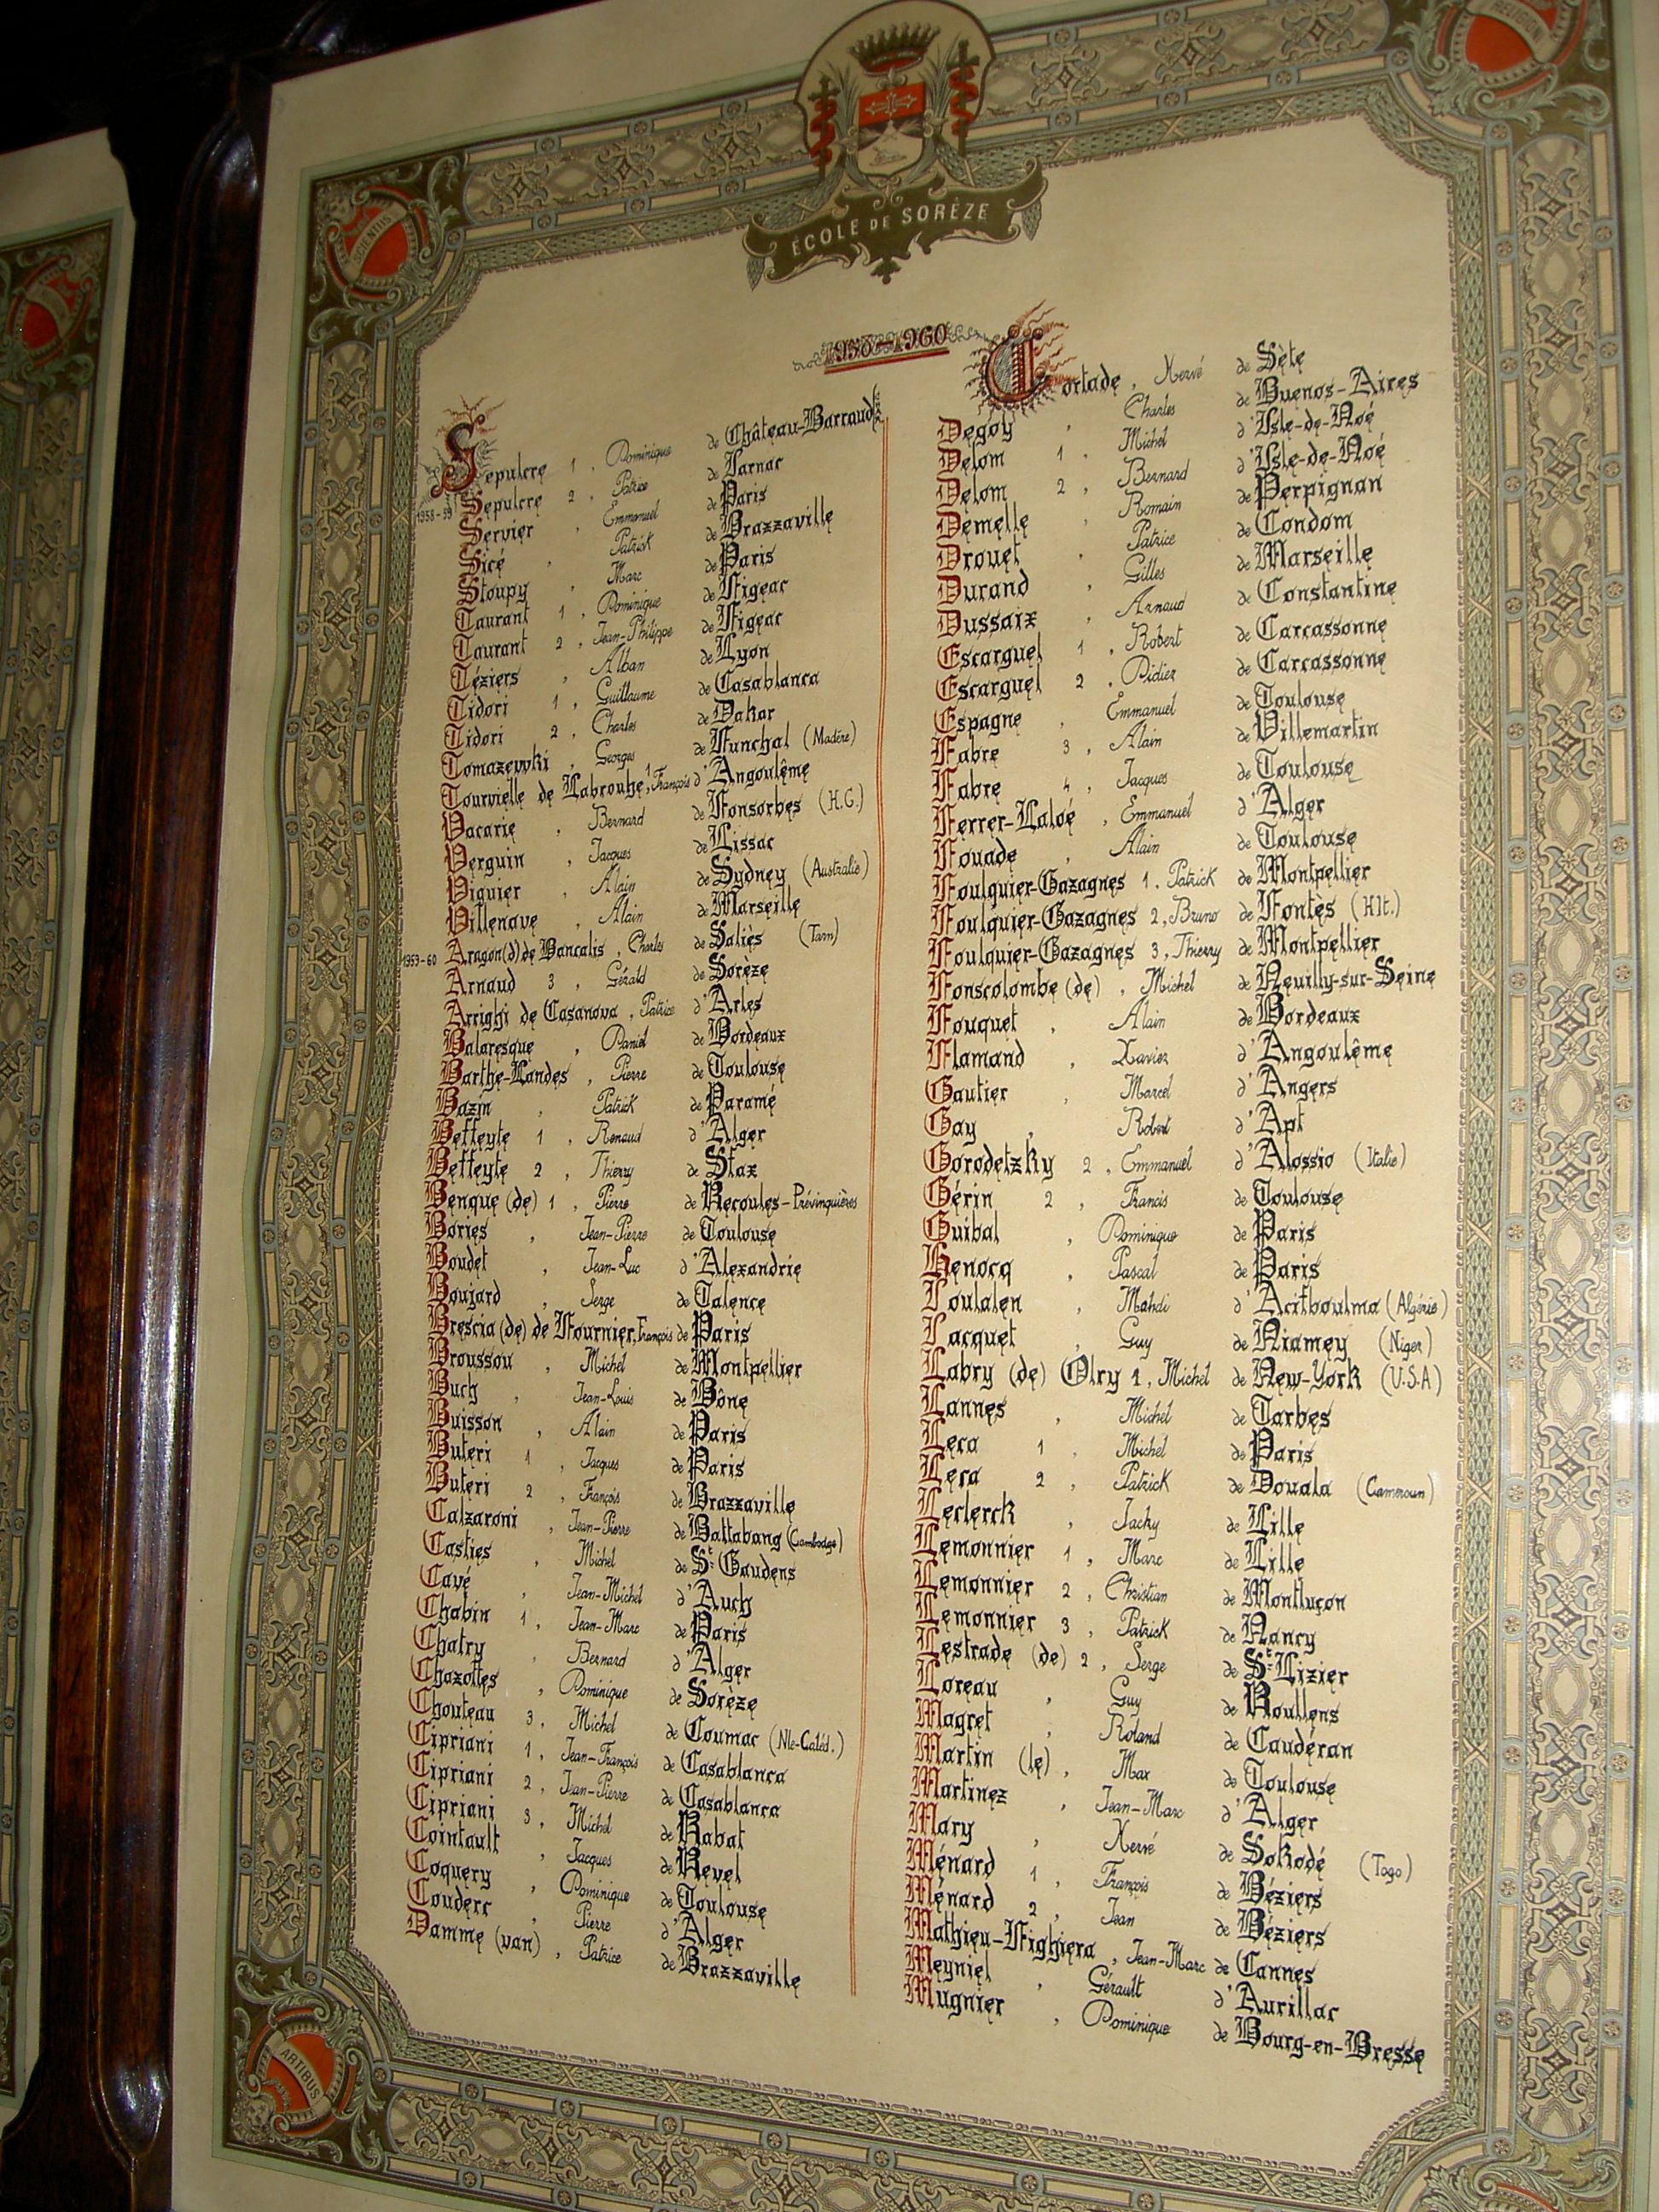 SCIENTIIS
RELIGIONI
ÉCOLE DE SORÈZE
1958-1960
Sepulcre 1, Dominique de Château-Barraud
Sepulcre 2, Patrice de Jarnac
1958-59
Servier, Emmanuel de Paris
Sicé, Patrick de Brazzaville
Stoupy, Marc de Paris
Taurant 1, Dominique de Figeac
Taurant 2, Jean-Philippe de Figeac
Téziers, Alban de Lyon
Tidori 1, Guillaume de Casablanca
Tidori 2, Charles de Dakar
Tomazevvki, Georges de Funchal (Madère)
Tourvielle de Labrouhe, François d'Angoulême
Vacarie, Bernard de Fonsorbes (H.G.)
Verguin, Jacques de Lissac
Viguier, Alain de Sydney (Australie)
Villenave, Alain de Marseille
1959-60 Aragon(d) de Bancalis, Charles de Saliès (Tarn)
Arnaud 3, Gérald de Sorèze
Arrighi de Casanova, Patrice d'Arles
Balaresque, Daniel de Bordeaux
Barthe-Landes, Pierre de Toulouse
Bazin, Patrick de Paramé
Beffeyte 1, Renaud d'Alger
Beffeyte 2, Thierry de Sfax
Benque (de) 1, Pierre de Recoules-Prévinquières
Bories, Jean-Pierre de Toulouse
Boudet, Jean-Luc d'Alexandrie
Boujard, Serge de Talence
Brescia (de) de Fournier, François de Paris
Broussou, Michel de Montpellier
Buch, Jean-Louis de Bône
Buisson, Alain de Paris
Buteri 1, Jacques de Paris
Buteri 2, François de Brazzaville
Calzaroni, Jean-Pierre de Battabang (Cambodge)
Casties, Michel de St Gaudens
Cavé, Jean-Michel d'Auch
Chabin 1, Jean-Marc de Paris
Chatry, Bernard d'Alger
Chazottes, Dominique de Sorèze
Chouteau 3, Michel de Coumac (Nle-Caléd.)
Cipriani 1, Jean-François de Casablanca
Cipriani 2, Jean-Pierre de Casablanca
Cipriani 3, Michel de Rabat
Cointault, Jacques de Revel
Coquery, Dominique de Toulouse
Couderc, Pierre d'Alger
Damme (van), Patrice de Brazzaville
Cortade, Hervé de Sète
Degoy, Charles de Buenos-Aires
Delom 1, Michel d'Isle-de-Noé
Delom 2, Bernard d'Isle-de-Noé
Demelle, Romain de Perpignan
Drouet, Patrice de Condom
Durand, Gilles de Marseille
Dussaix, Arnaud de Constantine
Escarguel 1, Robert de Carcassonne
Escarguel 2, Didier de Carcassonne
Espagne, Emmanuel de Toulouse
Fabre 3, Alain de Villemartin
Fabre 4, Jacques de Toulouse
Ferrer-Laloé, Emmanuel d'Alger
Fouade, Alain de Toulouse
Foulquier-Gazagnes 1, Patrick de Montpellier
Foulquier-Gazagnes 2, Bruno de Fontès (Hlt.)
Foulquier-Gazagnes 3, Thierry de Montpellier
Fonscolombe (de), Michel de Neuilly-sur-Seine
Fouquet, Alain de Bordeaux
Flamand, Xavier d'Angoulême
Gautier, Marcel d'Angers
Gay, Robert d'Apt
Gorodetzky 2, Emmanuel d'Alossio (Italie)
Gérin 2, Francis de Toulouse
Guibal, Dominique de Paris
Henocq, Pascal de Paris
Joulalen, Mahdi d'Acifboulma (Algérie)
Lacquet, Guy de Niamey (Niger)
Labry (de) Olry 1, Michel de New-York (U.S.A)
Lannes, Michel de Tarbes
Leca 1, Michel de Paris
Leca 2, Patrick de Douala (Cameroun)
Leclerck, Jacky de Lille
Lemonnier 1, Marc de Lille
Lemonnier 2, Christian de Montluçon
Lemonnier 3, Patrick de Nancy
Lestrade (de) 2, Serge de St Lizier
Loreau, Guy de Roullens
Magret, Roland de Caudéran
Martin (le), Max de Toulouse
Martinez, Jean-Marc d'Alger
Mary, Hervé de Sokodé (Togo)
Ménard 1, François de Béziers
Ménard 2, Jean de Béziers
Mathieu-Fighiera, Jean-Marc de Cannes
Meyniel, Gérault d'Aurillac
Mugnier, Dominique de Bourg-en-Bresse
ARTIBUS